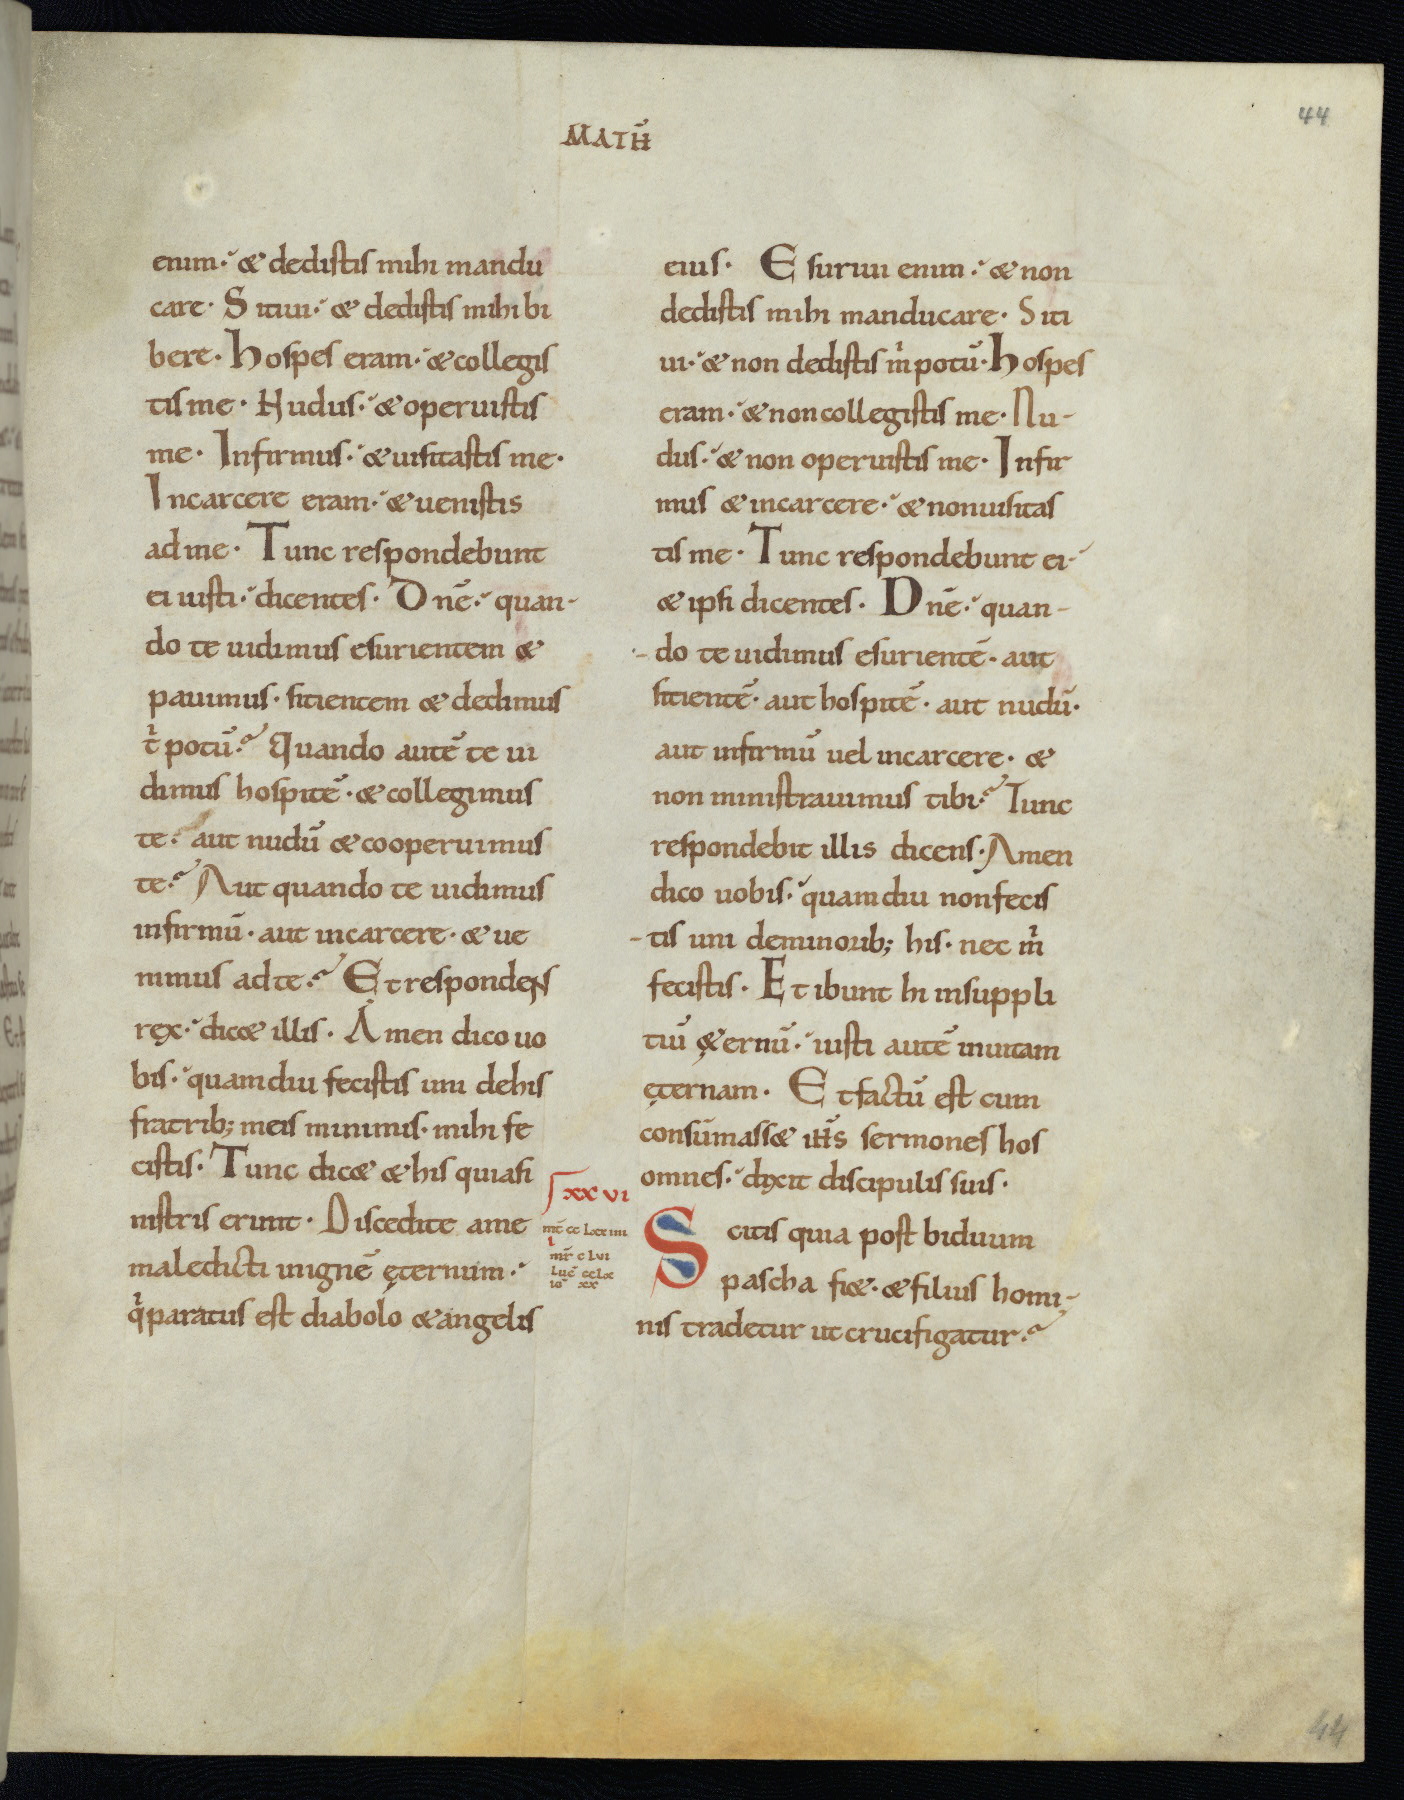 44
MATH̅
enim· & dedistis mihi mandu
care· Sitiui· & dedistis mihi bi
bere· Hospes eram· & collegis
tis me· Nudus· & operuistis
me· Infirmus· & uisitastis me·
Incarcere eram· & uenistis
ad me· Tunc respondebunt
ei iusti· dicentes· Dn̄e· quan-
do te uidimus esurientem &
pauimus· sitientem & dedimus
t̉ potū· Quando autē te ui
dimus hospitē· & collegimus
te· aut nudū & cooperuimus
te· Aut quando te uidimus
infirmū· aut incarcere· & ue
nimus ad te· Et respondens
rex· dic& illis· Amen dico uo
bis· quamdiu fecistis uni dehis
fratrib; meis minimis· mihi fe
cistis· Tunc dic& & his quiasi
nistris erunt· Discedite ame
maledicti inignē ęternum·
q̉ paratus est diabolo & angelis
eius· Esuriui enim· & non
dedistis mihi manducare· Siti
ui· & non dedistis m̉ potū· Hospes
eram· & non collegistis me· Nu-
dus· & non operuistis me· Infir
mus & incarcere· & nonuisitas
tis me· Tunc respondebunt ei·
& ipsi dicentes· Dn̄e· quan-
do te uidimus esurientē· aut
sitientē· aut hospitē· aut nudū·
aut infirmū uel incarcere· &
non ministrauimus tibi· Tunc
respondebit illis dicens· Amen
dico uobis· quamdiu nonfecis
tis uni deminorib; his· nec m̉
fecistis· Et ibunt hi insuppli
tiū ę&ernū· iusti autē inuitam
ęternam· Et factū est cum
consūmass& ih̅s sermones hos
omnes· dixit discipulis suis·
XXVI
mt̄ cclxxiiii
i
mr̄ clvi
luc̄ cclx
io xx
Scitis quia post biduum
pascha fi&· & filius homi-
nis tradetur ut crucifigatur·
44